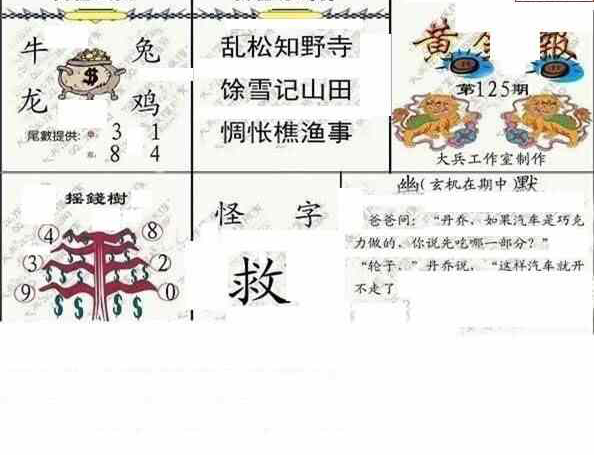 牛 兔
龙 鸡
$
尾數提供: 3 1
8 4
乱松知野寺
馀雪记山田
惆怅樵渔事
黄金报
第125期
大兵工作室制作
摇錢樹
4 8
3 2
9 0
$ $ $ $ $ $ $ $
怪 字
救
幽(玄机在期中)默
爸爸问：“丹乔、如果汽车是巧克
力做的、你说先吃哪一部分？”
“轮子、”丹乔说，“这样汽车就开
不走了